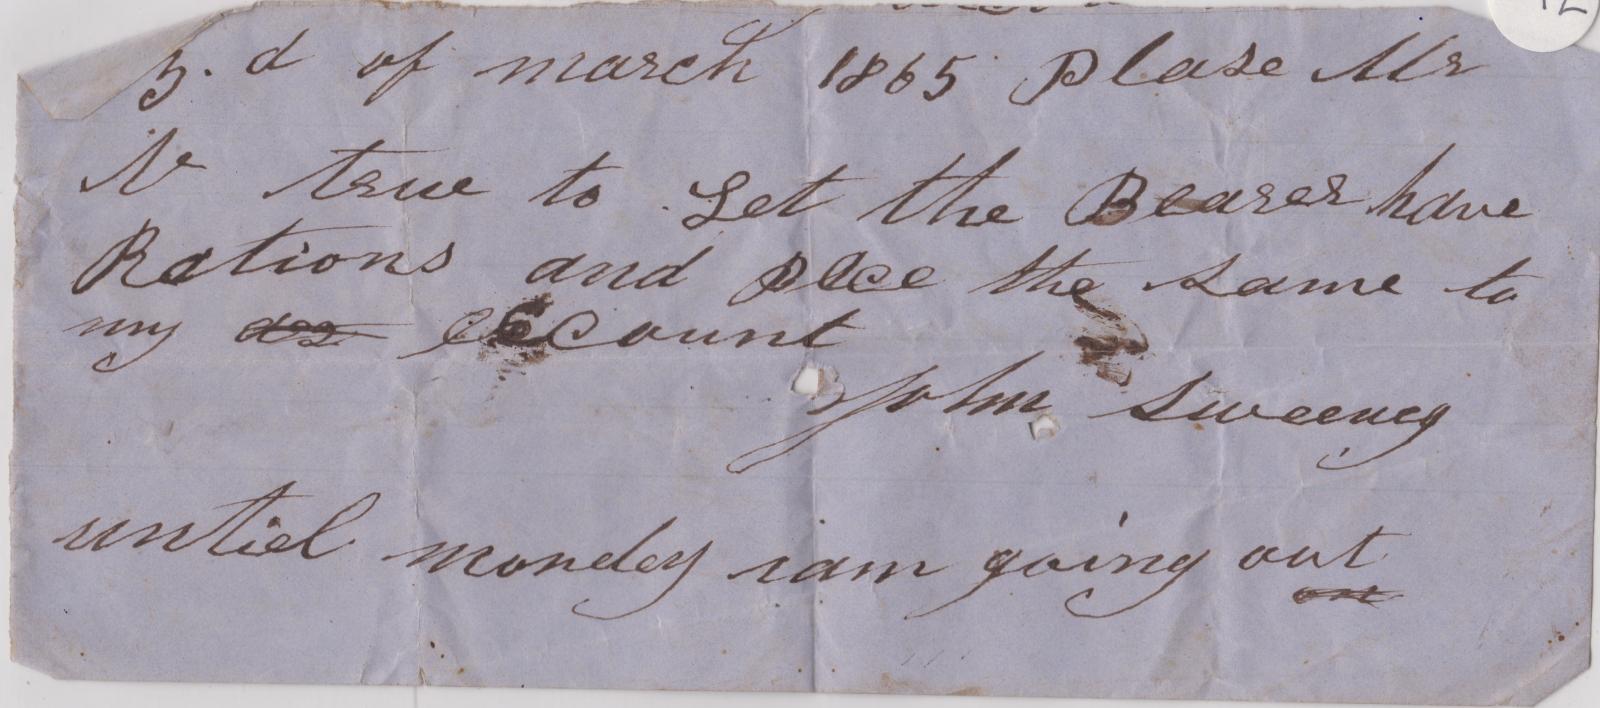 3.d of march 1865 Plase Mr
N true to Let the Bearer have
Rations and Place the same to
my account
John Sweeney
untiel mondey i am going out